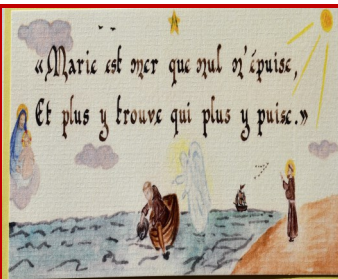 «Marie est mer que nul n'épuise,
Et plus y trouve qui plus y puise.»